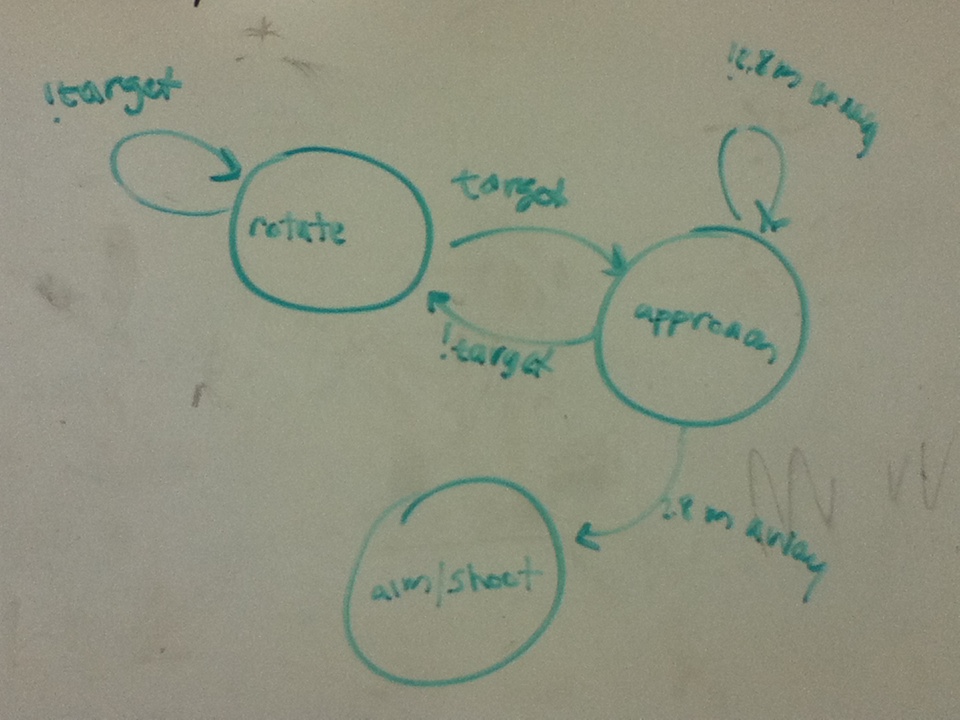 !target
rotate
target
!target
approach
m away
aim/shoot